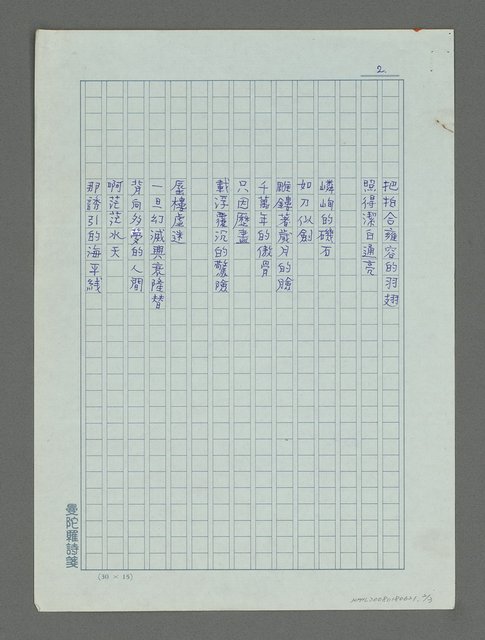 2.
把拍合雍容的羽翅
照得潔白通亮
嶙峋的磯石
如刀似劍
雕鏤著歲月的臉
千萬年的傲骨
只因歷盡
載浮覆沉的驚險
蜃樓虛迷
一旦幻滅興衰隆替
背向多夢的人間
啊茫茫水天
那誘引的海平綫
曼陀羅詩箋
(30 × 15)